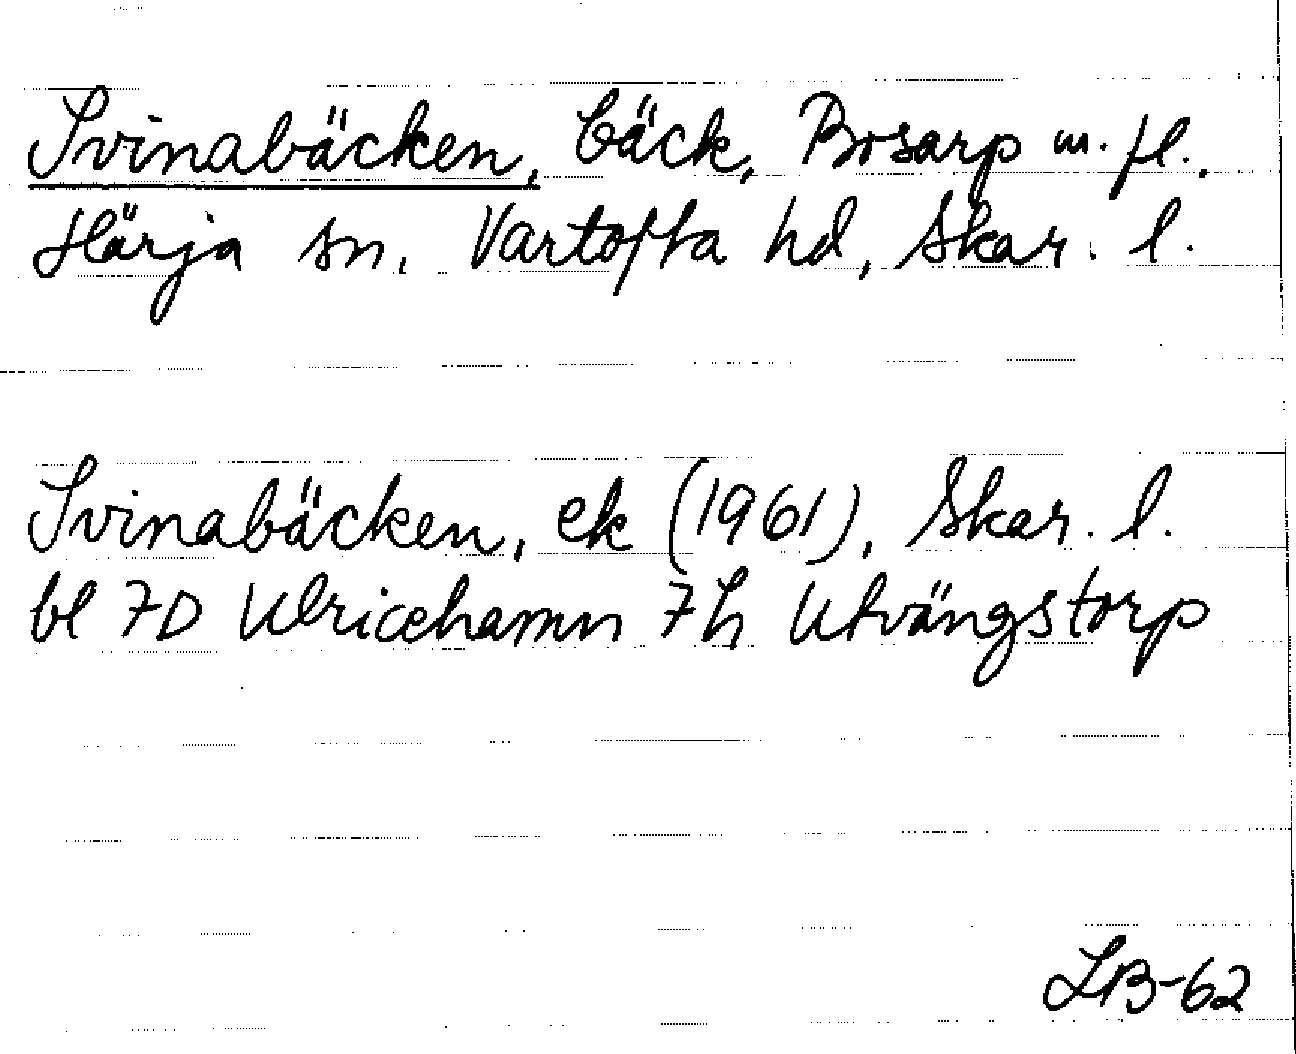 Svinabäcken, bäck, Bosarp m. fl.,
Härja sn, Vartofta hd, Skar. l.
Svinabäcken, ek (1961), Skar. l.
bl 7D Ulricehamn 7h Utvängstorp
LB-62